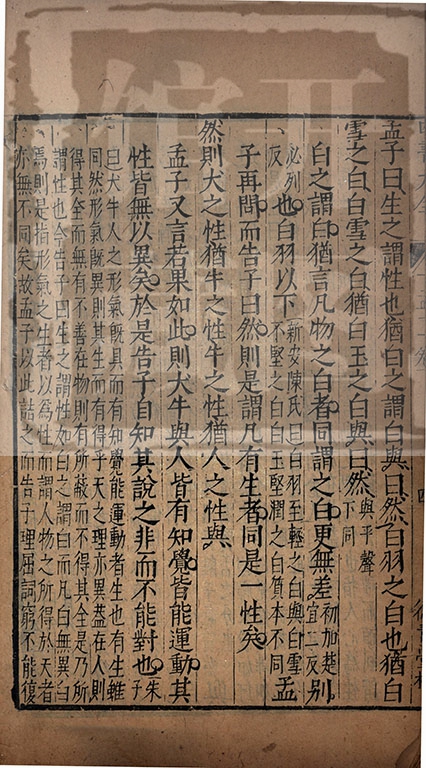 孟子曰生之謂性也猶白之謂白與曰然白羽之白也猶白
雪之白白雪之白猶白玉之白與曰然與平聲下同
白之謂白猶言凡物之白者同謂之白更無差初加楚宜二反別
必列反也白羽以下新安陳氏曰白羽至輕之白與白雪不堅之白白玉堅潤之白質本不同孟
子再問而告子曰然則是謂凡有生者同是一性矣
然則犬之性猶牛之性牛之性猶人之性與
孟子又言若果如此則犬牛與人皆有知覺皆能運動其
性皆無以異矣於是告子自知其說之非而不能對也朱子
曰犬牛人之形氣既具而有知覺能運動者生也有生雖
同然形氣既異則其生而有得乎天之理亦異蓋在人則
得其全而無有不善在物則有所蔽而不得其全是乃所
謂性也今告子曰生之謂性如白之謂白而凡白無異白
焉則是指形氣之生者以為性而謂人物之所得於天者
亦無不同矣故孟子以此詰之而告子理屈詞窮不能復